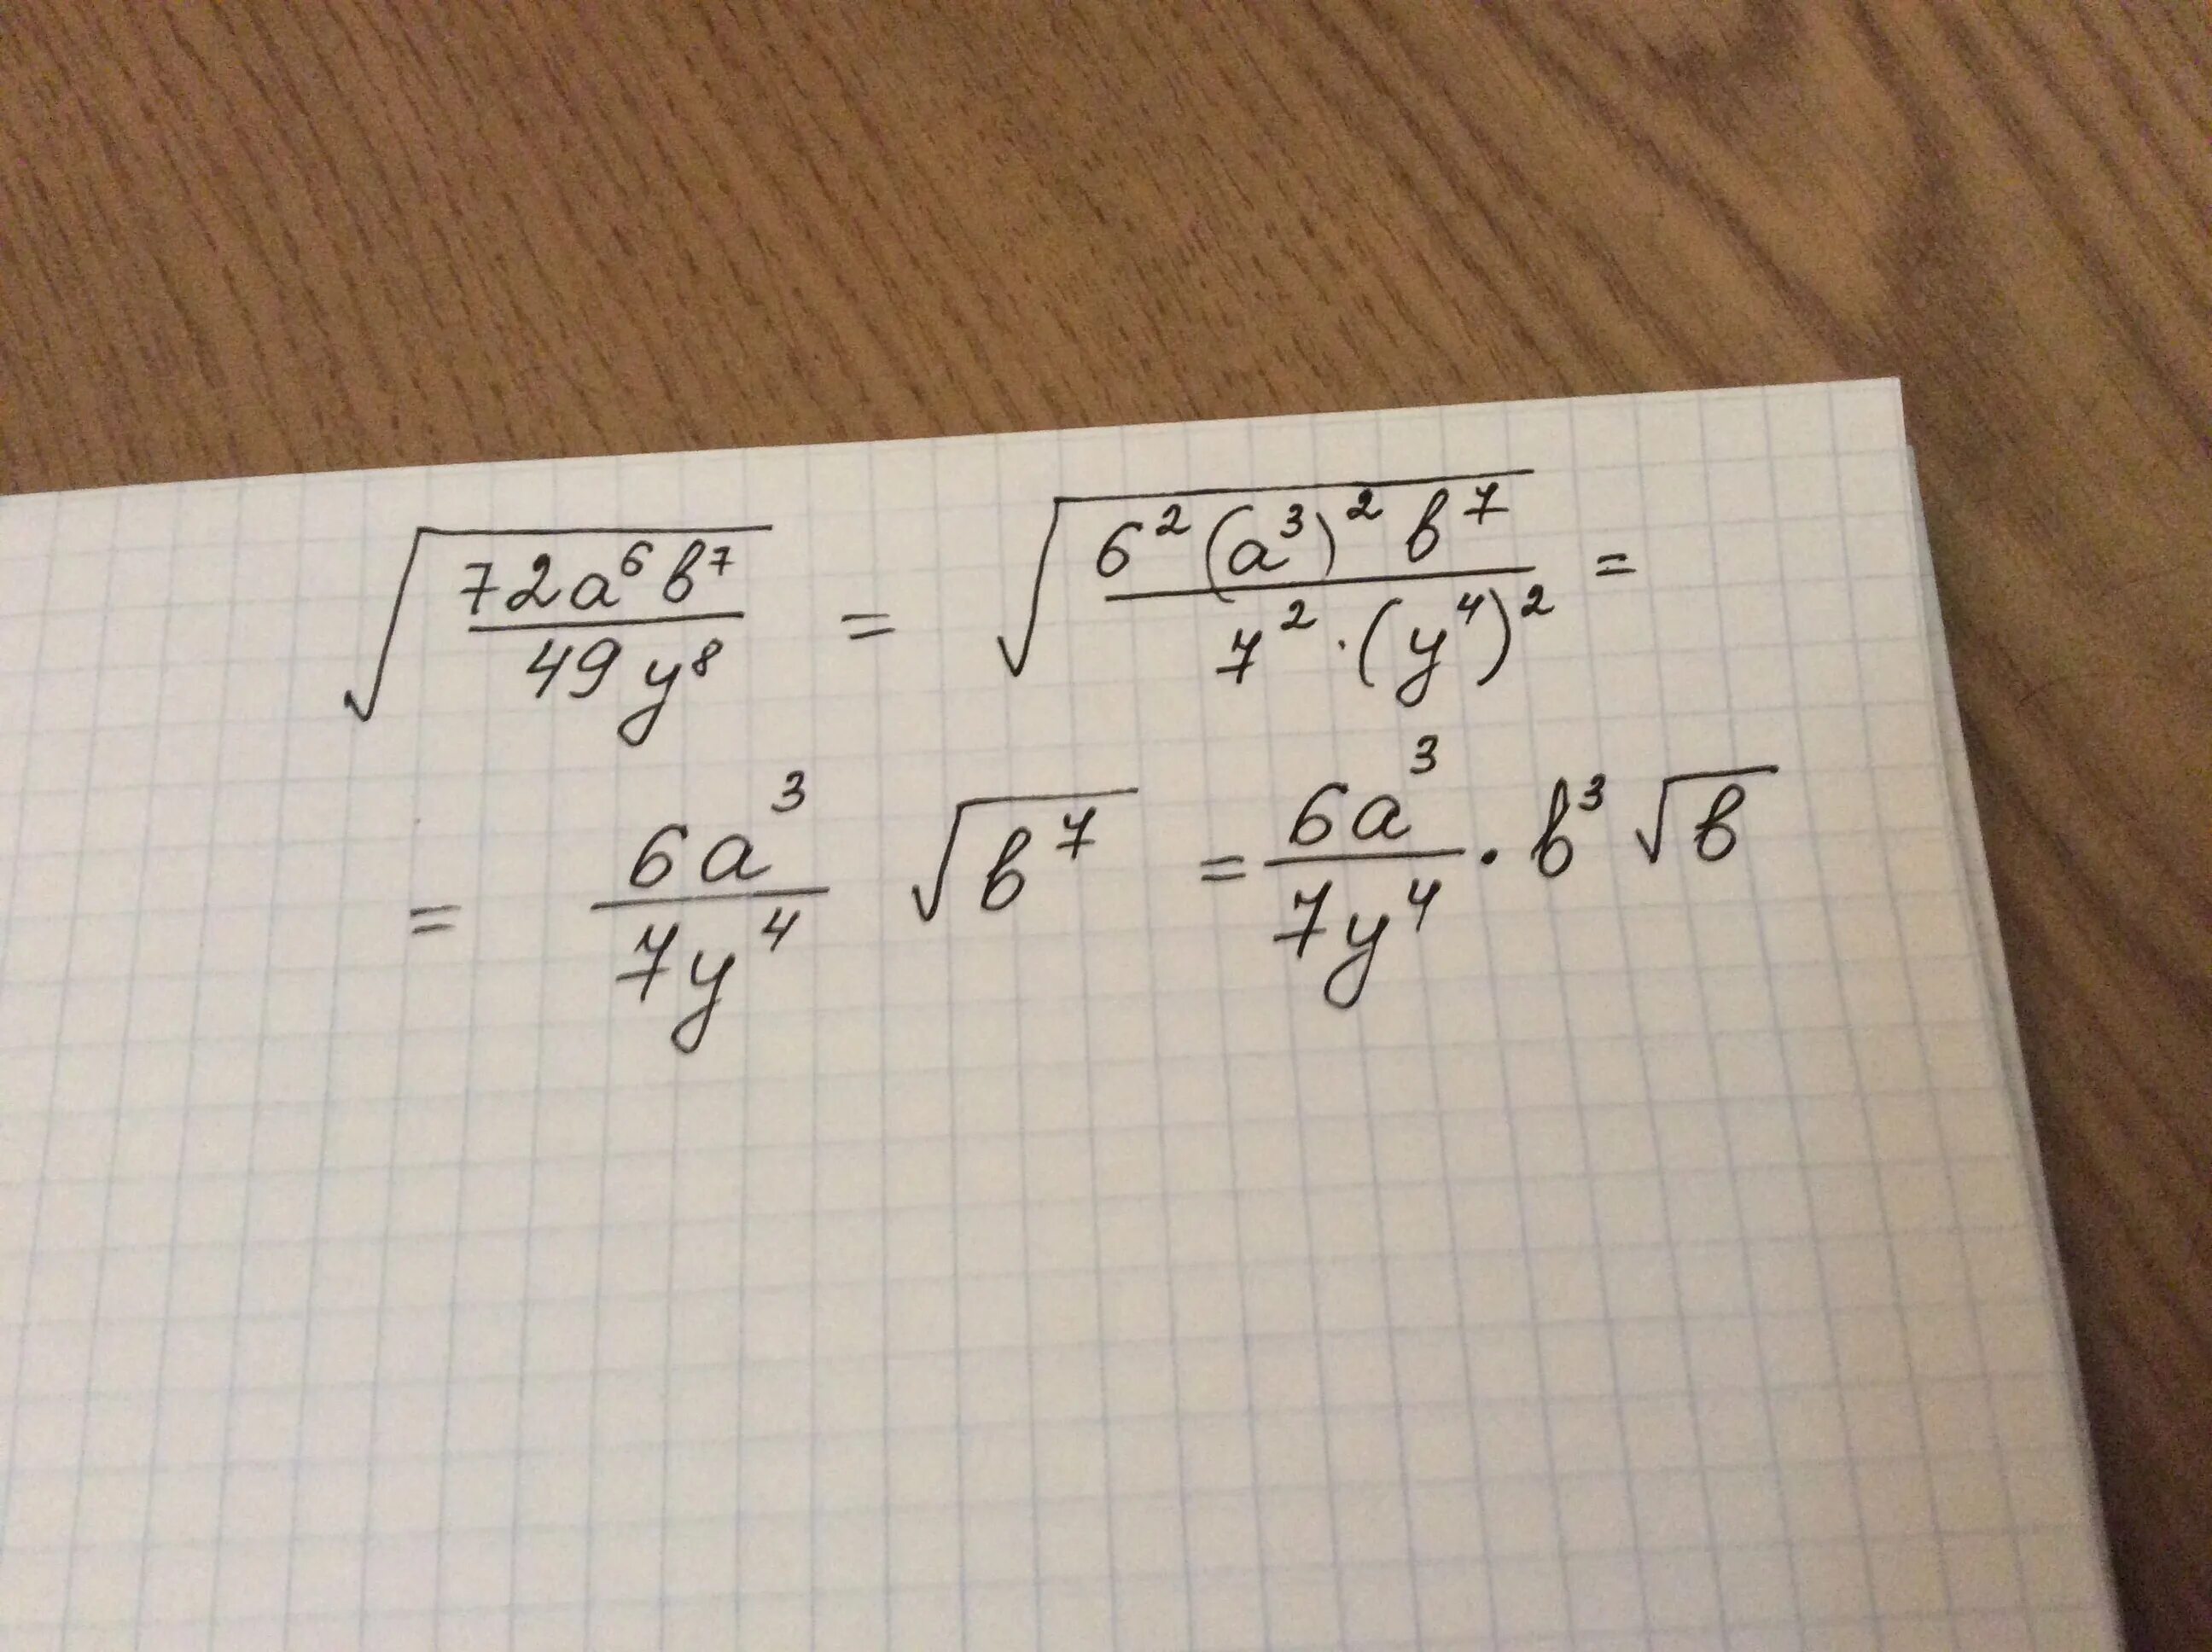 √(72a⁶b⁷ / 49y⁸) = √(6²(a³)²b⁷ / 7²·(y⁴)²) =
= 6a³/7y⁴ √b⁷ = 6a³/7y⁴ · b³√b